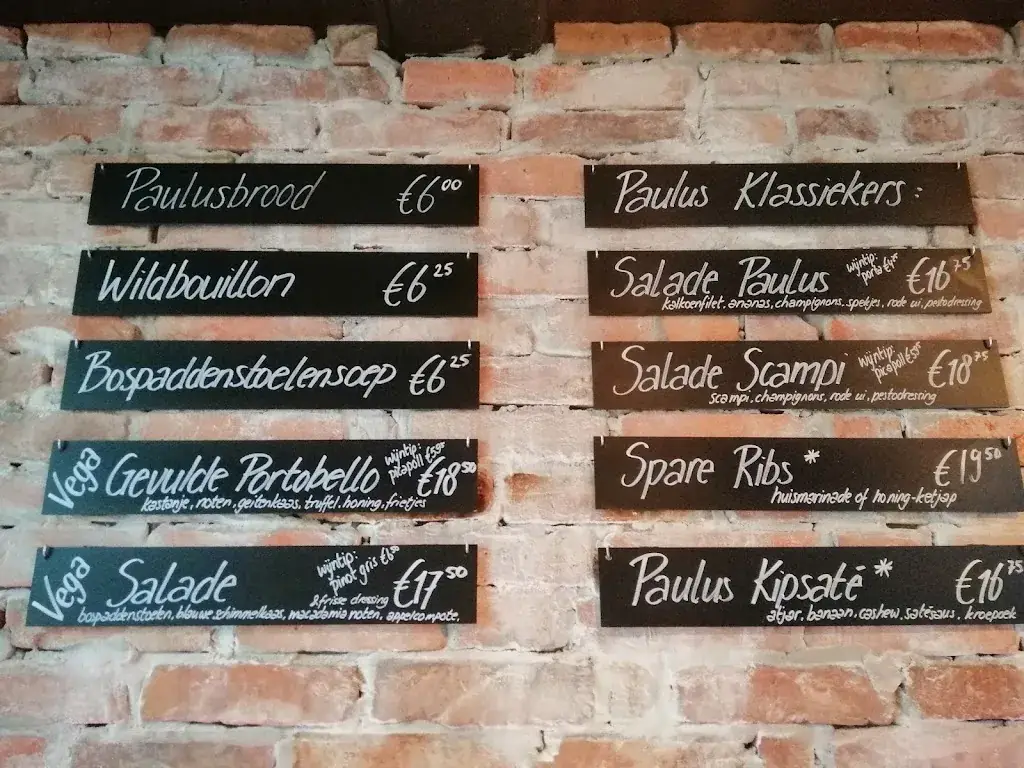 Paulusbrood €6⁰⁰
Wildbouillon €6²⁵
Bospaddenstoelensoep €6²⁵
Vega Gevulde Portobello wijntip: €18⁵⁰
picapoll €5⁹⁵
kastanje, noten, geitenkaas, truffel, honing, frietjes
Vega Salade wijntip: €17⁵⁰
pinot gris €6⁵⁰
& frisse dressing
bospaddenstoelen, blauwe schimmelkaas, macadamia noten, appelcompote,
Paulus Klassiekers:
Salade Paulus wijntip: €16⁷⁵
porta
kalkoenfilet, ananas, champignons, spekjes, rode ui, pestodressing
Salade Scampi wijntip: €18⁷⁵
picapoll €5⁹⁵
scampi, champignons, rode ui, pestodressing
Spare Ribs* €19⁵⁰
huismarinade of honing-ketjap
Paulus Kipsaté* €16⁷⁵
atjar, banaan, cashew, satésaus, kroepoek